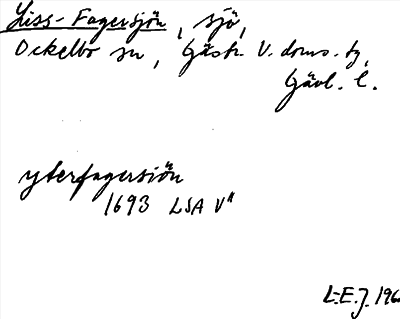 Liss-Fagersjön, sjö,
Ockelbo sn, Gästr. V. doms. tg,
Gävl. l.
yterfagersiön
1693 LSA V"
L-E.J. 196